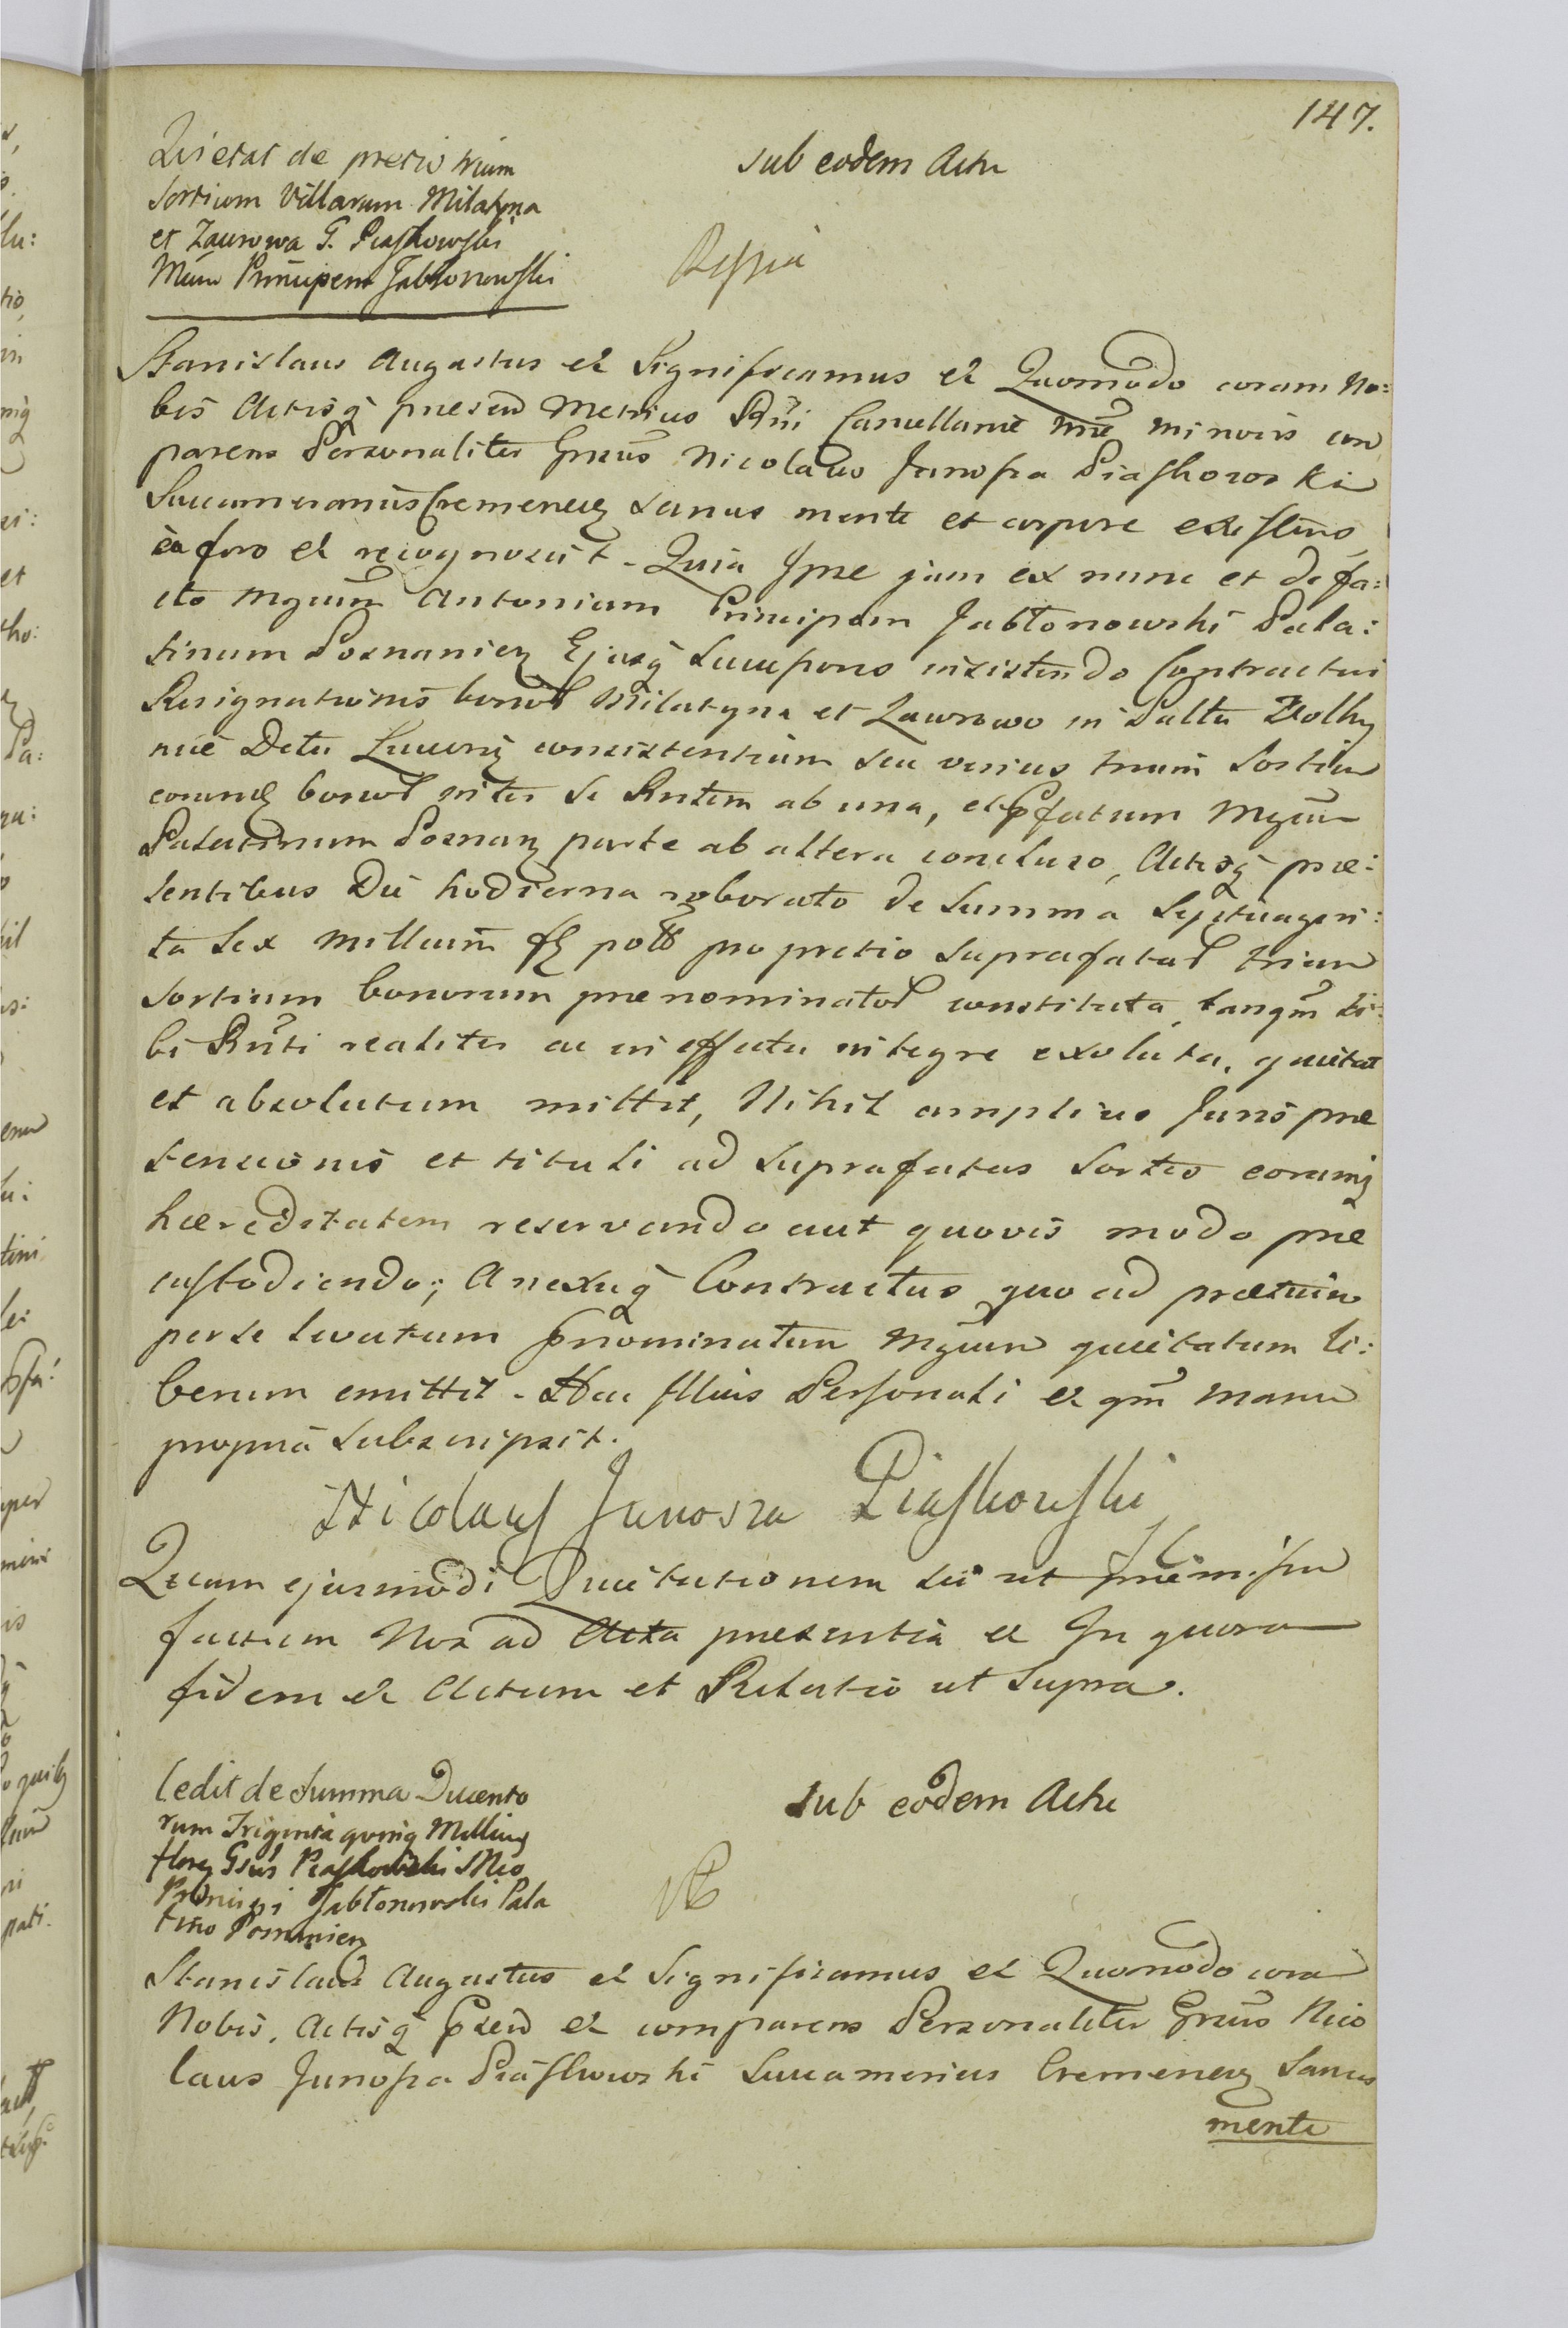 147.
Quietat de pretio trium
Sortium Villarum Milatyna
et Zaurowa G. Piaskowski
Mcum Principem Jabłonowski
sub eodem Actu
Stanislaus Augustus et Significamus et Quomodo coram No:
bis Actisq presen Metrices Rni Cancellariæ mris minoris com
parens Personaliter Gnsus Nicolaus Junosza Piaskowski
Succamerarius Cremenecz sanus mente et corpore existens
eo foro et recognovit - Quia Ipse jam ex nunc et de fa:
cto Mgcum Antonium Principem Jabłonowski Pala:
tinum Posnanien Ejusq Succes insistendo Contractui
Resignationis bonor Milatyna et Zawrowo in Paltu Volhy
niæ Dctu Luceor consistentium seu verius trium Sortium
eorund bonor inter se Rntem ab una, et pfatum Mgcum
Palatinum Posnan parte ab altera concluso, Actisq præ:
sentibus Die hodierna roborato de Summa Septuagin:
ta Sex Millium fl poll pro pretio suprafatar trium
Sortium bonorum prenominator constituta, tanqm si:
bi Rnti realiter ac in effectu integre exoluta, quietat
et absolutum mittit, Nihil amplius Juris præ
tensionis et tituli ad suprafatas Sortes earumq
hæreditatem reservando aut quovis modo præ
custodiendo; Anexuq Contractus quo ad prætium
per se levatum pnominatum Mgcum quietatum li:
berum emittit - Hac Illius Personali et qm manu
propria subscripsit.
Nicolaus Junosza Piaskowski
Quam ejusmodi Quietationem sic ut præmissum
factam Nos ad Acta presentia et In quorum
fidem et Actum et Relatio ut supra.
Cedit de Summa Ducento
rum Triginta quinq Millium
floren Gsus Piaskowski Mco
Principi Jabłonowski Pala
tino Posnanien
sub eodem Actu
Stanislaus Augustus et Significamus et Quomodo coram
Nobis, Actisq psen et comparens Personaliter Gnsus Nico
laus Junosza Piaskowski Succamerius Cremenecz Sanus
mente